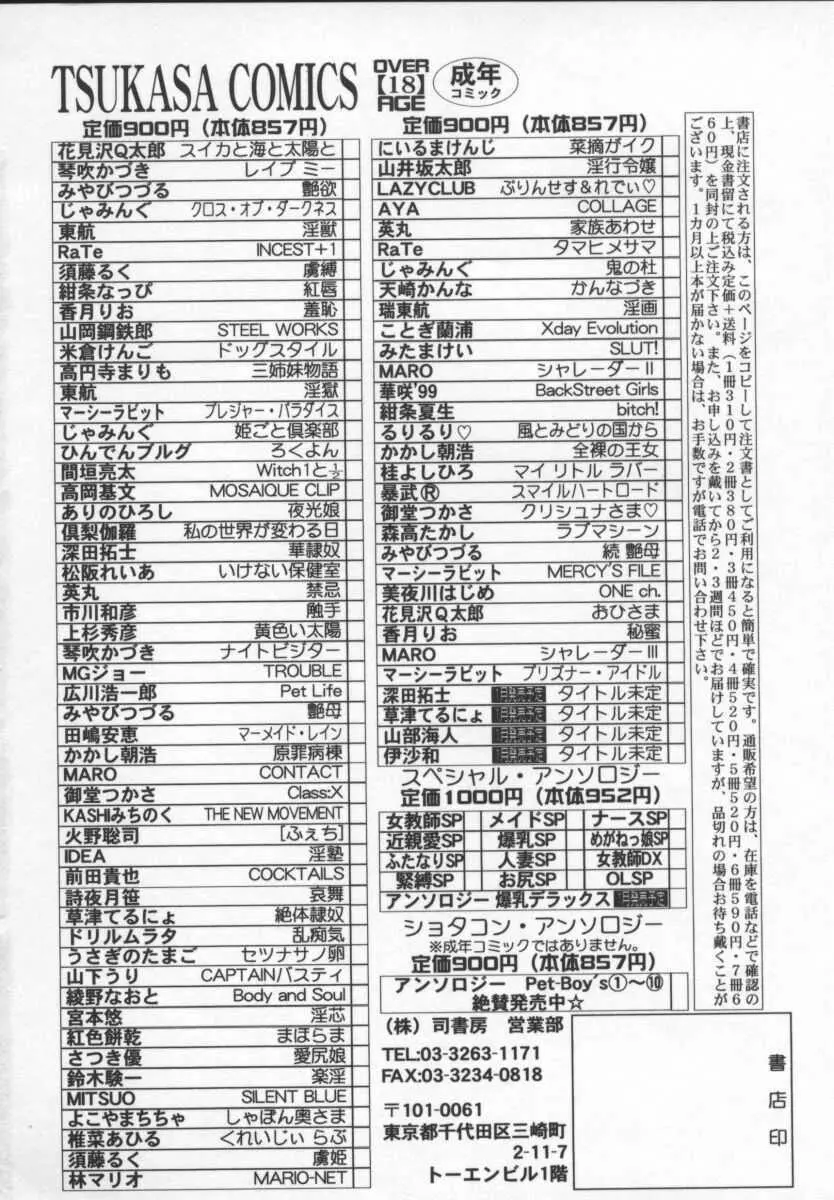 TSUKASA COMICS OVER【18】AGE 成年コミック
定価900円(本体857円)
花見沢Q太郎 スイカと海と太陽と
琴吹かづき レイプ ミー
みやびつづる 艶欲
じゃみんぐ クロス・オブ・ダークネス
東航 淫獣
RaTe INCEST+1
須藤るく 虜縛
紺条なっぴ 紅唇
香月りお 羞恥
山岡鋼鉄郎 STEEL WORKS
米倉けんご ドッグスタイル
高円寺まりも 三姉妹物語
東航 淫獄
マーシーラビット プレジャー・パラダイス
じゃみんぐ 姫ごと倶楽部
ひんでんブルグ ろくよん
間垣亮太 Witch1と½
高岡基文 MOSAIQUE CLIP
ありのひろし 夜光娘
倶梨伽羅 私の世界が変わる日
深田拓士 華隷奴
松阪れいあ いけない保健室
英丸 禁忌
市川和彦 触手
上杉秀彦 黄色い太陽
琴吹かづき ナイトビジター
MGジョー TROUBLE
広川浩一郎 Pet Life
みやびつづる 艶母
田嶋安恵 マーメイド・レイン
かかし朝浩 原罪病棟
MARO CONTACT
御堂つかさ Class:X
KASHIみちのく THE NEW MOVEMENT
火野聡司 [ふぇち]
IDEA 淫塾
前田貴也 COCKTAILS
詩夜月笹 哀舞
草津てるにょ 絶体隷奴
ドリルムラタ 乱痴気
うさぎのたまご セツナサノ卵
山下うり CAPTAINバスティ
綾野なおと Body and Soul
宮本悠 淫芯
紅色餅乾 まほらま
さつき優 愛尻娘
鈴木験一 楽淫
MITSUO SILENT BLUE
よこやまちちゃ しゃぼん奥さま
椎菜あひる くれいじぃ らぶ
須藤るく 虜姫
林マリオ MARIO-NET
定価900円(本体857円)
にいるまけんじ 菜摘がイク
山井坂太郎 淫行令嬢
LAZYCLUB ぷりんせす&れでぃ♡
AYA COLLAGE
英丸 家族あわせ
RaTe タマヒメサマ
じゃみんぐ 鬼の杜
天崎かんな かんなづき
瑞東航 淫画
ことぎ蘭浦 Xday Evolution
みたまけい SLUT!
MARO シャレーダーⅡ
華咲'99 BackStreet Girls
紺条夏生 bitch!
るりるり♡ 風とみどりの国から
かかし朝浩 全裸の王女
桂よしひろ マイ リトル ラバー
暴武Ⓡ スマイルハートロード
御堂つかさ クリシュナさま♡
森高たかし ラブマシーン
みやびつづる 続 艶母
マーシーラビット MERCY'S FILE
美夜川はじめ ONE ch.
花見沢Q太郎 おひさま
香月りお 秘蜜
MARO シャレーダーⅢ
マーシーラビット プリズナー・アイドル
深田拓士 タイトル未定
草津てるにょ タイトル未定
山部海人 タイトル未定
伊沙和 タイトル未定
スペシャル・アンソロジー
定価1000円(本体952円)
女教師SP メイドSP ナースSP
近親愛SP 爆乳SP めがねっ娘SP
ふたなりSP 人妻SP 女教師DX
緊縛SP お尻SP OLSP
アンソロジー 爆乳デラックス
ショタコン・アンソロジー
※成年コミックではありません。
定価900円(本体857円)
アンソロジー Pet-Boy's①〜⑩
絶賛発売中☆
(株) 司書房 営業部
TEL:03-3263-1171
FAX:03-3234-0818
〒101-0061
東京都千代田区三崎町
2-11-7
トーエンビル1階
書店印
書店に注文される方は、このページをコピーして注文書としてご利用になると簡単で確実です。通販希望の方は、在庫を電話などで確認の
上、現金書留にて税込み定価+送料(1冊310円・2冊380円・3冊450円・4冊520円・5冊520円・6冊590円・7冊6
60円)を同封の上ご注文下さい。また、お申し込みを戴いてから2・3週間ほどでお届けしていますが、品切れの場合お待ち戴くことが
ございます。1カ月以上本が届かない場合は、お手数ですが電話でお問い合わせ下さい。